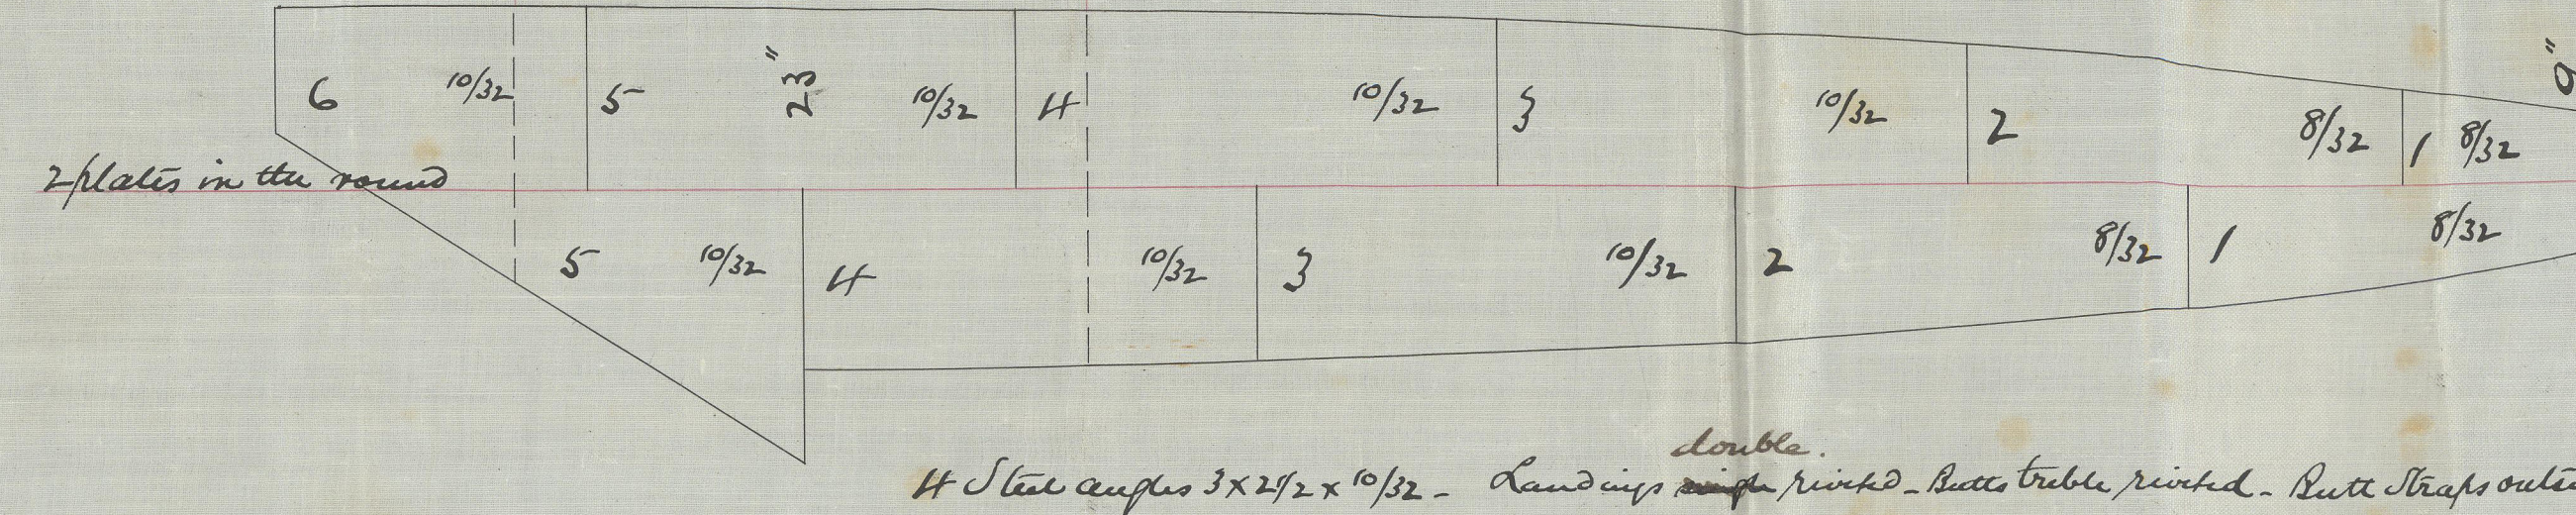 6 10/32 5 23" 10/32 4 10/32 3 10/32 2 8/32 1 8/32 9"
2 plates in the round
5 10/32 4 10/32 3 10/32 2 8/32 1 8/32
double.
4 Steel angles 3 x 2 1/2 x 10/32 - Landings single riveted - Butts treble riveted - Butt Straps outsi